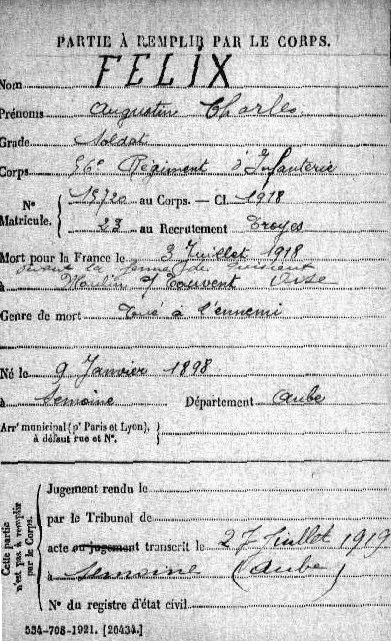 PARTIE À REMPLIR PAR LE CORPS.
FÉLIX
Nom
Prénoms Augustin Charles
Grade Soldat
Corps 56e Régiment d'Infanterie
N° Matricule. { 15720 au Corps. — Cl 1918
23 au Recrutement Troyes
Mort pour la France le 3 Juillet 1918
devant la ferme de
à Moulin s/ Touvent Oise
Genre de mort Tué à l'ennemi
Né le 9 Janvier 1898
à Semoine Département Aube
Arrt municipal (pr Paris et Lyon),
à défaut rue et N°.
Cette partie n'est pas à remplir par le Corps.
Jugement rendu le
par le Tribunal de
acte ou jugement transcrit le 27 Juillet 1919
à Semoine (Aube)
N° du registre d'état civil
534-708-1921. [26434.]